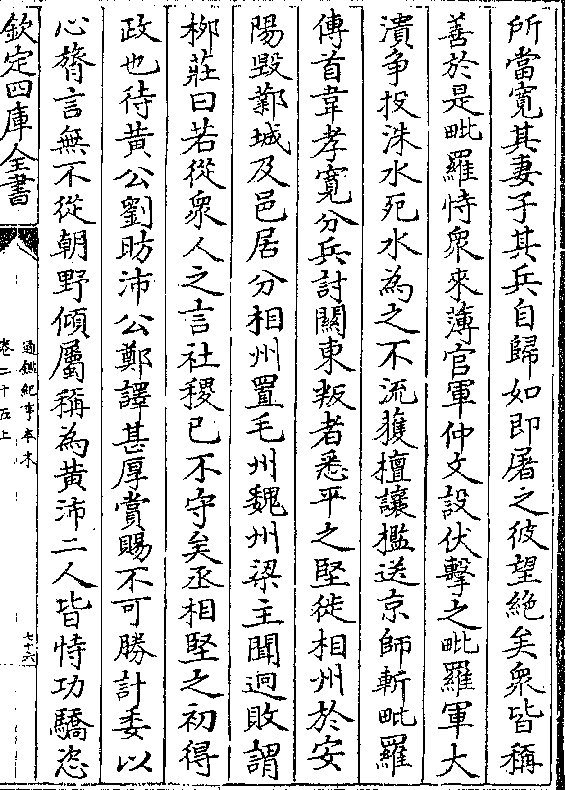 所當寛其妻子其兵自歸如即屠之彼望絶矣衆皆稱
善於是毗羅恃衆來薄官軍仲文設伏擊之毗羅軍大
潰争投洙水死水為之不流獲檀讓檻送京師斬毗羅
傳首韋孝寛分兵討關東叛者悉平之堅徙相州於安
陽毁鄴城及邑居分相州置毛州魏州梁主聞迥敗謂
柳莊曰若從衆人之言社稷已不守矣丞相堅之初得
政也待黄公劉昉沛公鄭譯甚厚賞賜不可勝計委以
心膂言無不從朝野傾屬稱為黄沛二人皆恃功驕恣
欽定四庫全書
通鑑紀事本末
卷二十五上
七十六